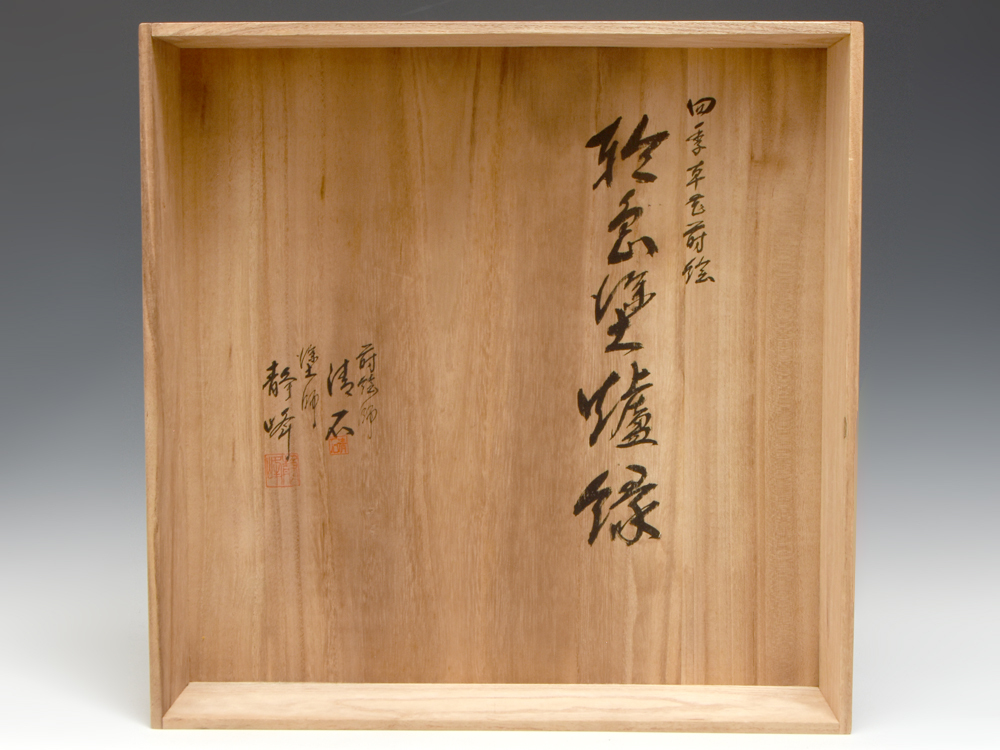 四季草花蒔絵
輪島塗爐縁
蒔絵師
清石
塗師
静峰